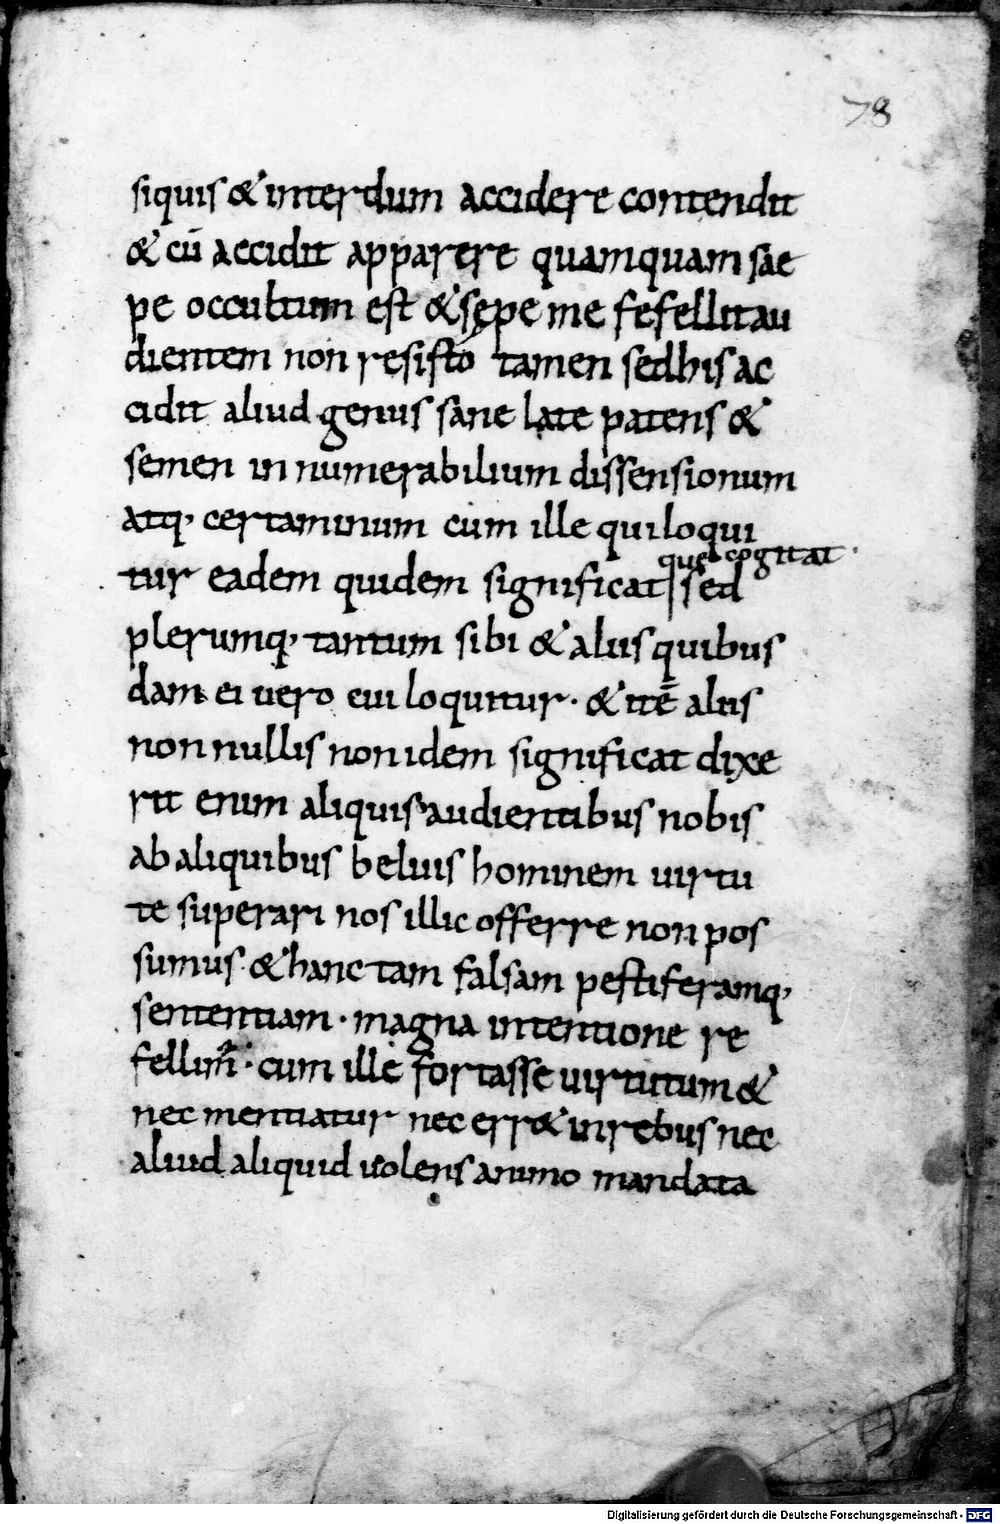 78
siquis & interdum accidere contendit
& cū accidit apparere quamquam sae
pe occultum est & sępe me fefellit au
dientem non resisto tamen sed his ac
cidit aliud genus sane late patens &
semen in numerabilium dissensionum
atq; certaminum cum ille qui loqui
tur eadem quidem significat quę cogitat sed
plerumq; tantum sibi & aliis quibus
dam ei vero cui loquitur · & itē aliis
non nullis non idem significat dixe
rit enim aliquis audientibus nobis
ab aliquibus beluis hominem uirtu
te superari nos illic offerre non pos
sumus · & hanc tam falsam pestiferamq;
sententiam · magna intentione re
fellim̄ · cum ille fortasse uirtutum &
nec mentiatur nec err& in rebus nec
aliud aliquid uolens animo mandata
Digitalisierung gefördert durch die Deutsche Forschungsgemeinschaft - DFG